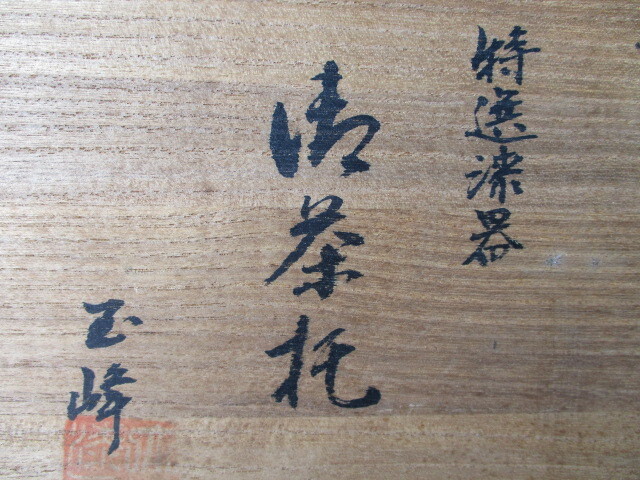 特選漆器
御茶托
玉峰